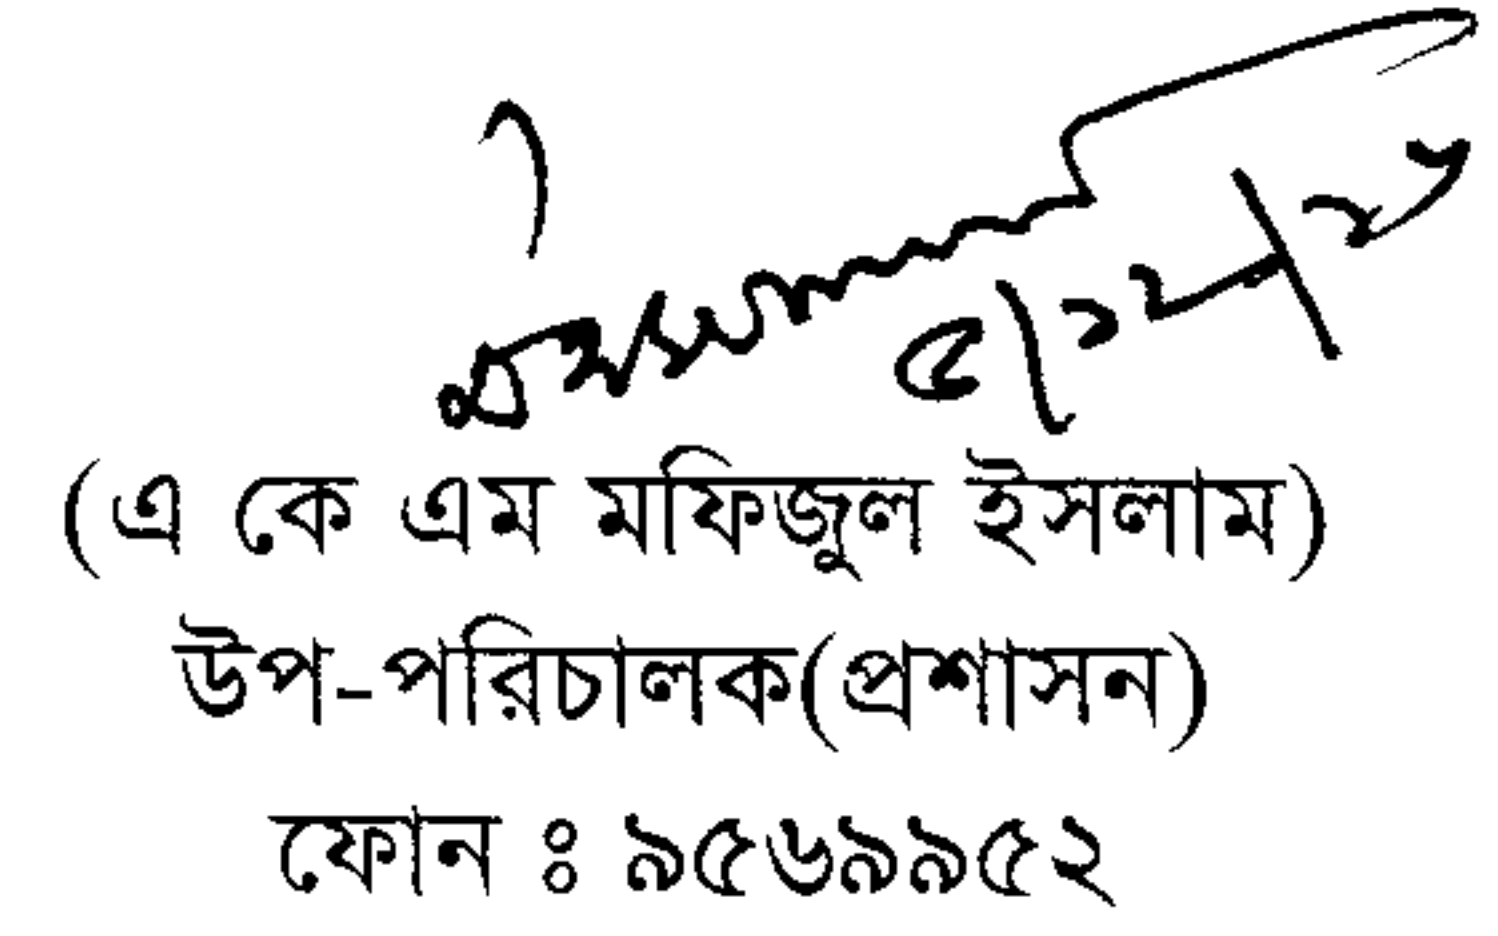 ৫/১২/২৩
(এ কে এম মফিজুল ইসলাম)
উপ-পরিচালক(প্রশাসন)
ফোন ঃ ৯৫৬৯৯৫২